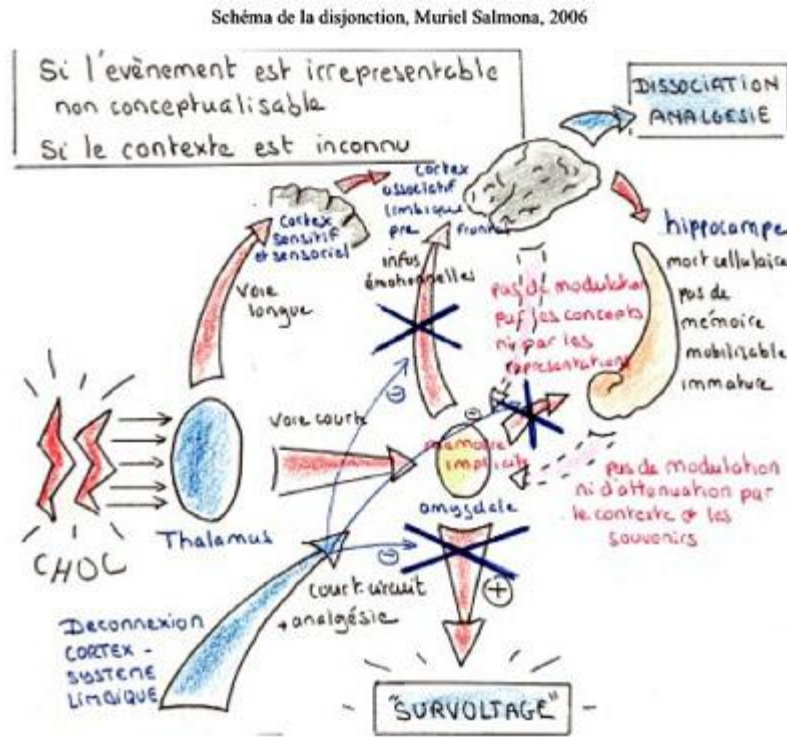 Schéma de la disjonction, Muriel Salmona, 2006
Si l'evènement est irrepresentable
non conceptualisable
Si le contexte est inconnu
DISSOCIATION
ANALGESIE
Cortex
associatif
limbique
pre frontal
Cortex
sensitif
et sensoriel
hippocampe
mort cellulaire
pas de
mémoire
mobilisable
immature
infos
émotionnelles
Voie
longue
pas de modulation
par les concepts
ni par les
representations
Voie courte
mémoire
implicite
amygdale
pas de modulation
ni d'attenuation par
le contexte & les
souvenirs
Thalamus
CHOC
court-circuit
+ analgésie
Deconnexion
CORTEX -
SYSTEME
LIMBIQUE
"SURVOLTAGE"